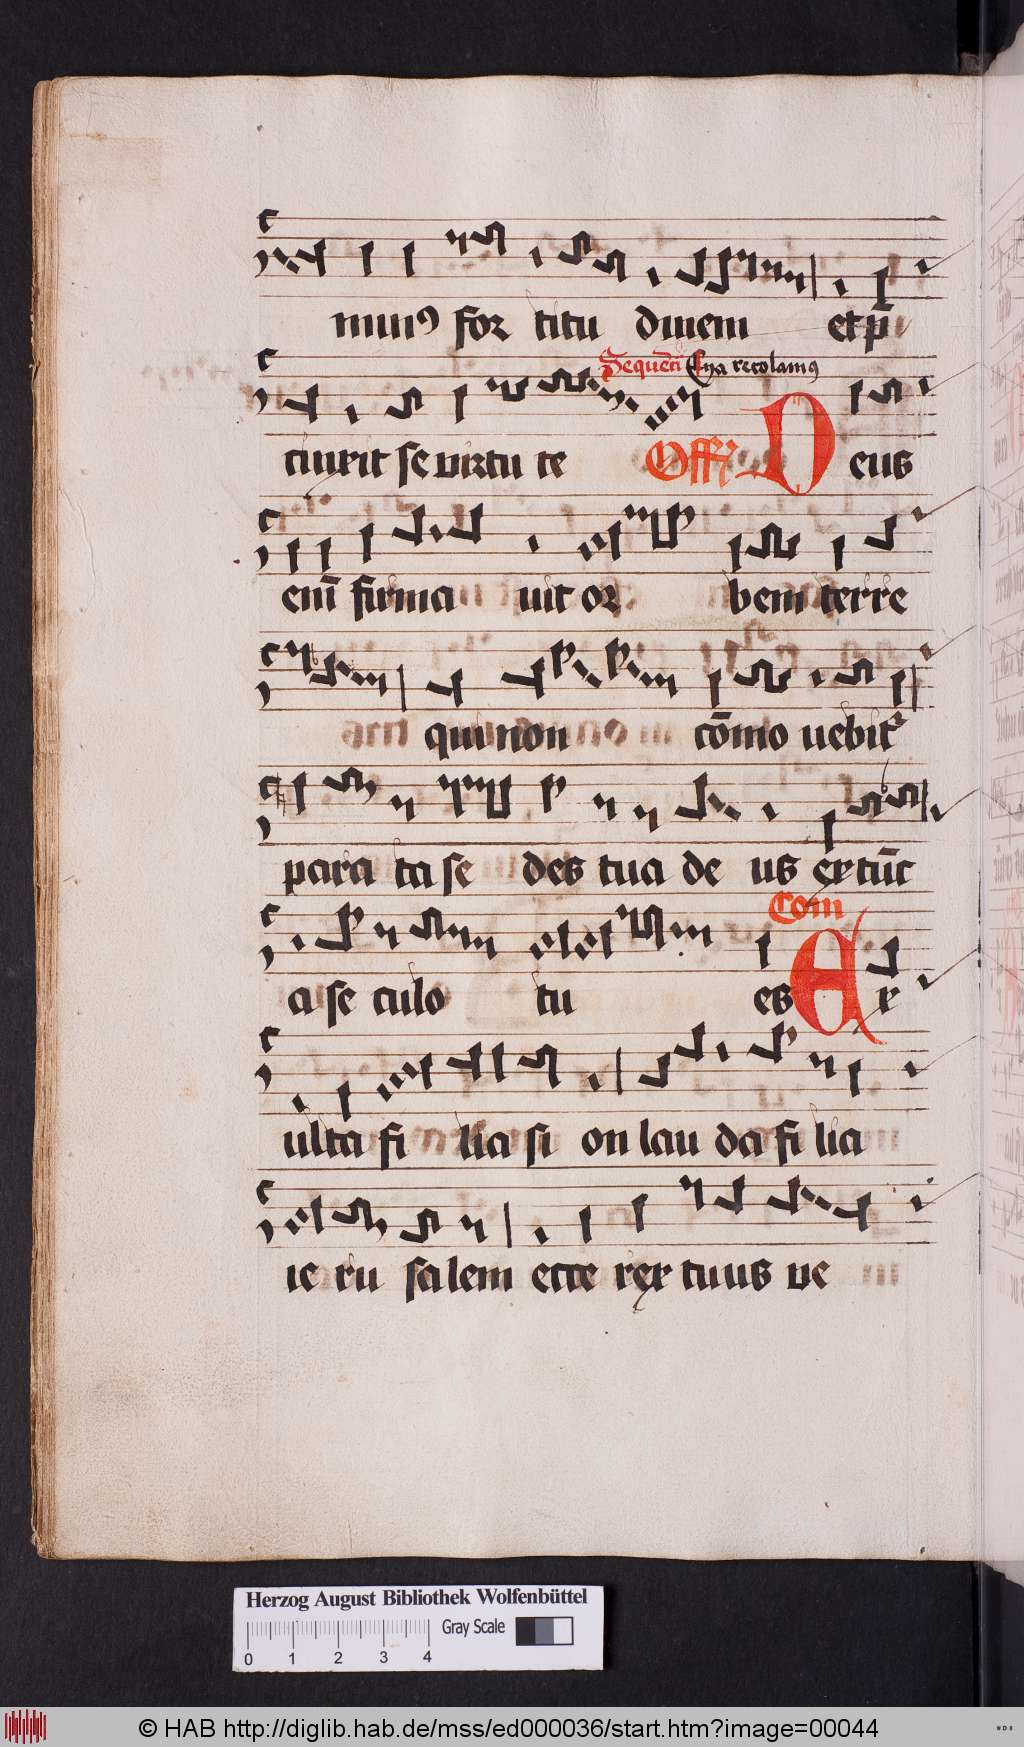 minꝰ for titu dinem et p̄
Sequēti Eya recolamꝰ
cinxit se virtu te Off D eus
eni̅ firma uit or bem terre
qui non cōmo uebit᷑
para ta se des tua de us ex tūc
Com
a se culo tu es E x
ulta fi lia si on lau da fi lia
ie ru salem ecce rex tuus ve
Herzog August Bibliothek Wolfenbüttel
Gray Scale
0 1 2 3 4
© HAB http://diglib.hab.de/mss/ed000036/start.htm?image=00044